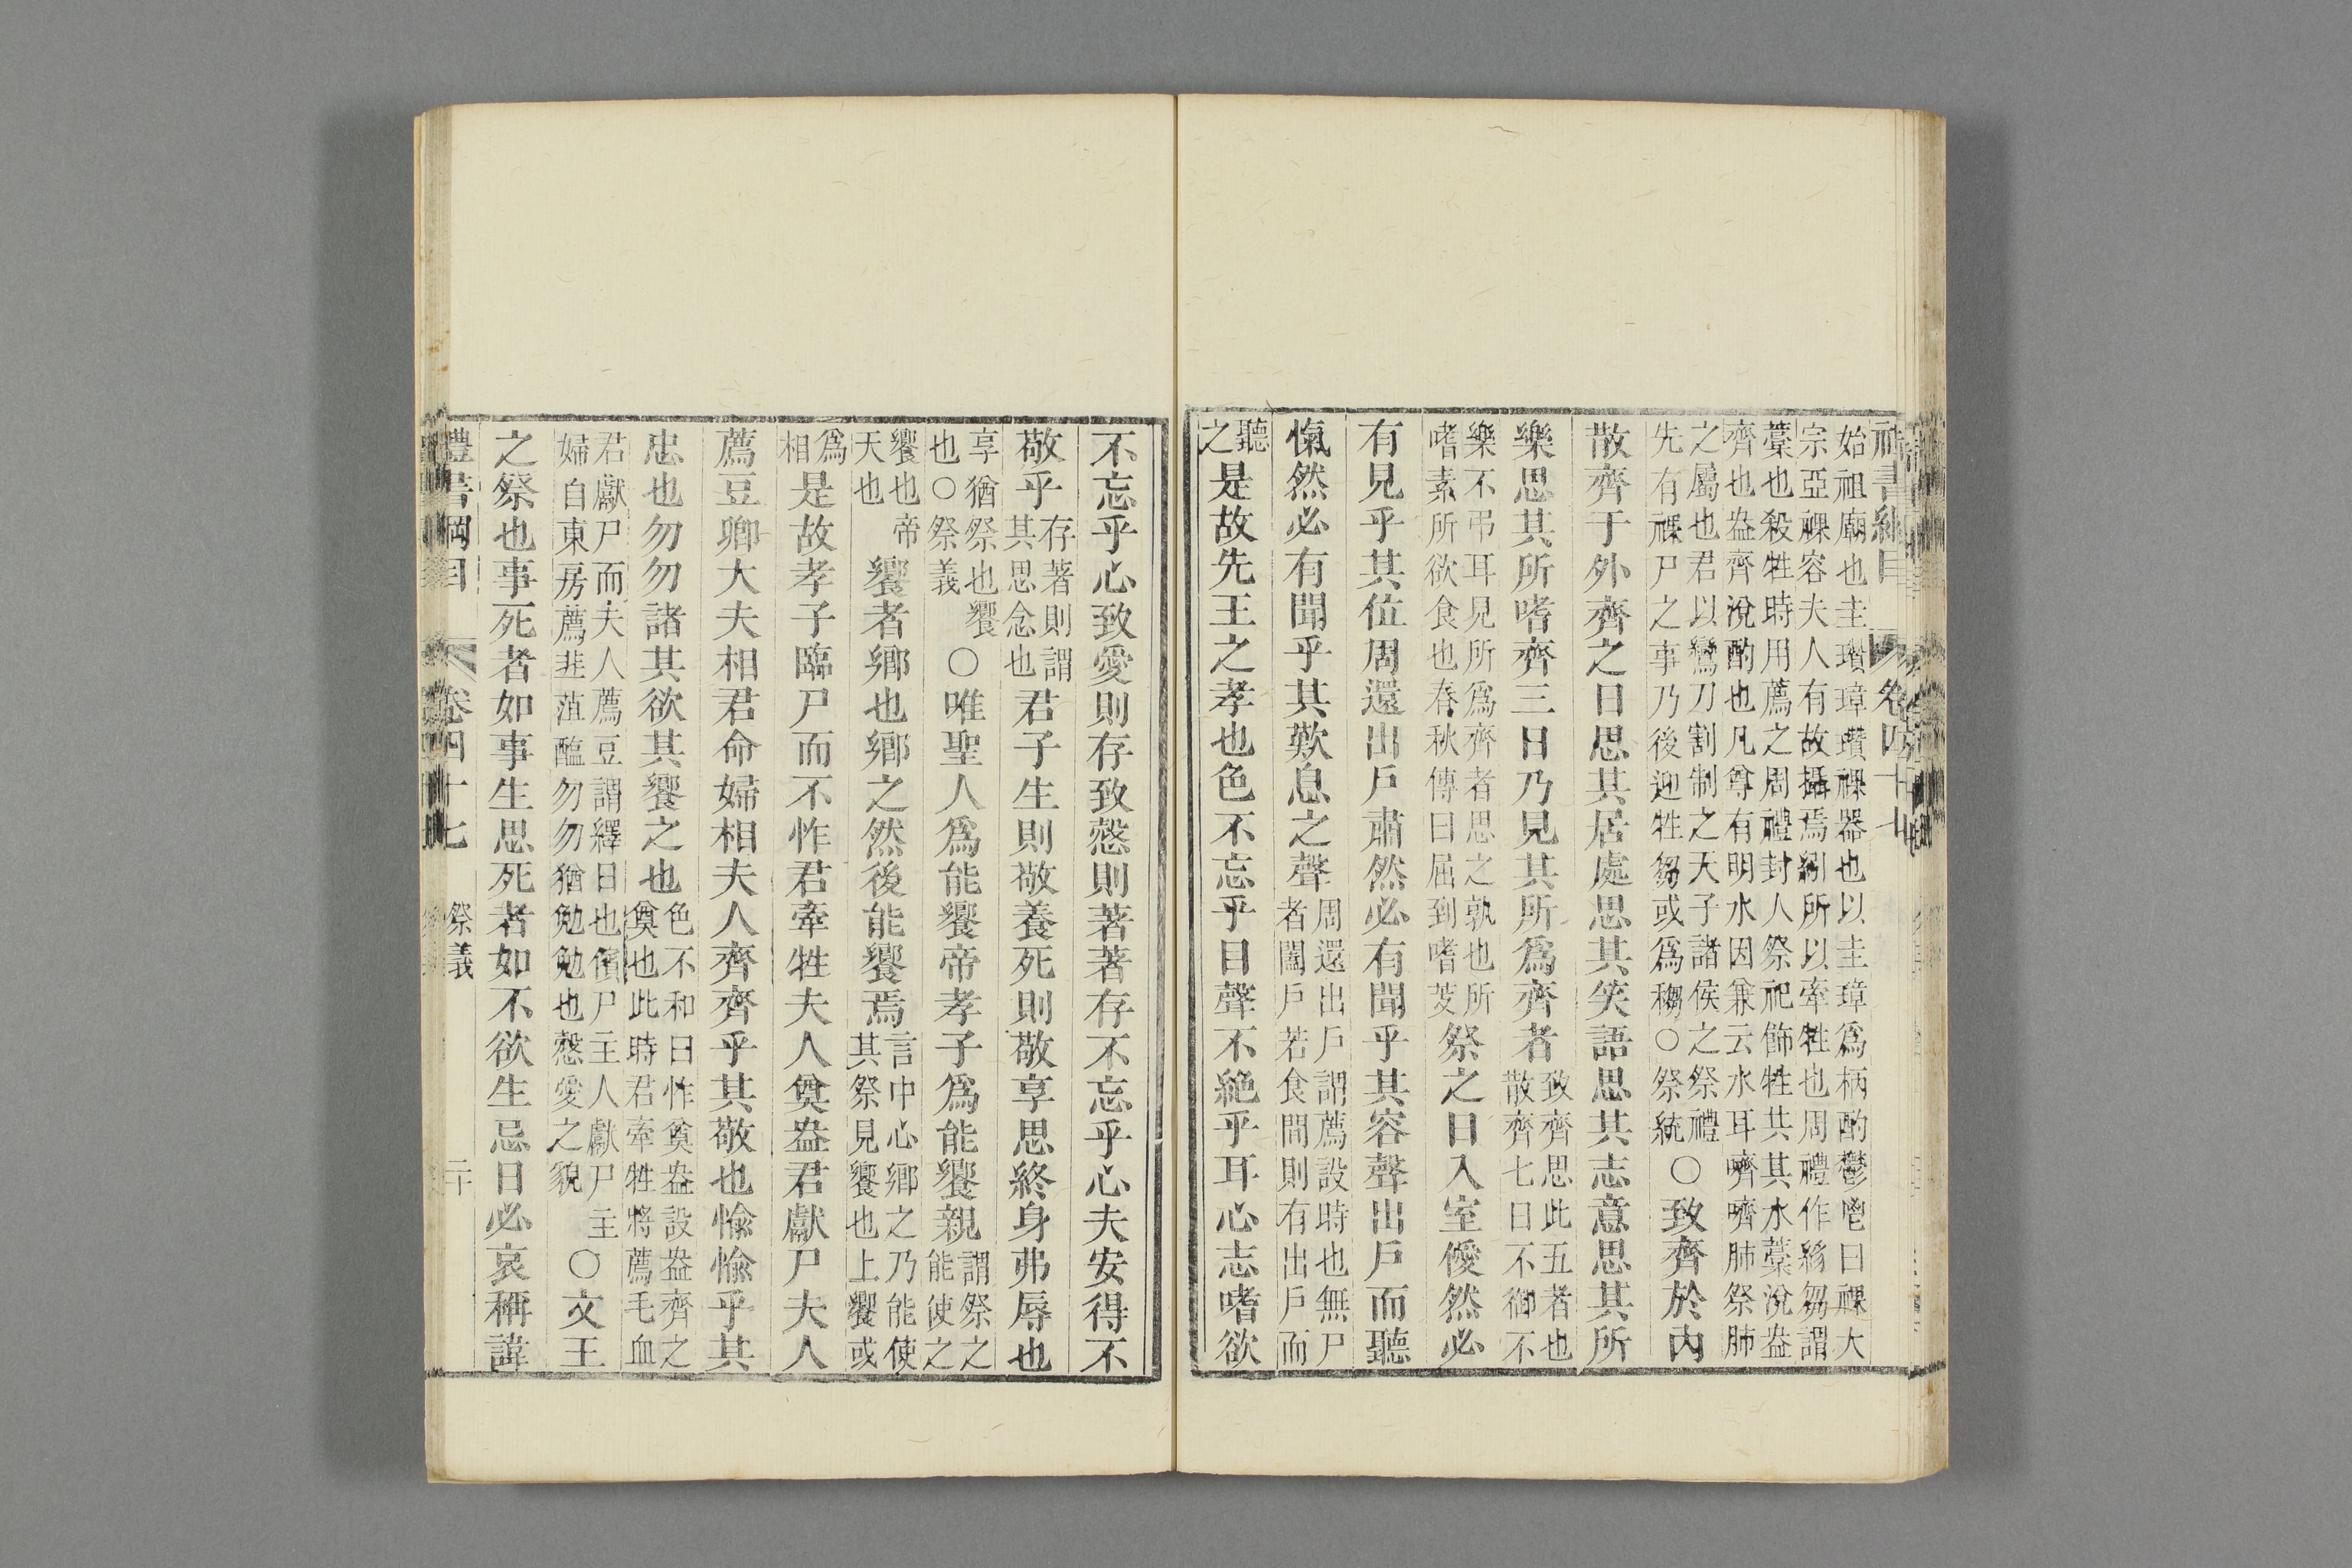 禮書綱目 卷四十七
始祖廟也圭瓚璋瓚祼器也以圭璋爲柄酌鬱鬯曰祼大
宗亞祼容夫人有故攝焉紖所以牽牲也周禮作絼芻謂
藁也殺牲時用薦之周禮封人祭祀飾牲共其水藁涗盎
齊也盎齊涗酌也凡尊有明水因兼云水耳嚌嚌肺祭肺
之屬也君以鸞刀割制之天子諸侯之祭禮
先有祼尸之事乃後迎牲芻或爲䅳○祭統
○致齊於内
散齊于外齊之日思其居處思其笑語思其志意思其所
樂思其所嗜齊三日乃見其所爲齊者
致齊思此五者也
散齊七日不御不
樂不弔耳見所爲齊者思之孰也所
嗜素所欲食也春秋傳曰屈到嗜芰
祭之日入室僾然必
有見乎其位周還出戶肅然必有聞乎其容聲出戶而聽
愾然必有聞乎其歎息之聲
周還出戶謂薦設時也無尸
者闔戶若食間則有出戶而
聽
之
是故先王之孝也色不忘乎目聲不絶乎耳心志嗜欲
不忘乎心致愛則存致愨則著著存不忘乎心夫安得不
敬乎
存著則謂
其思念也
君子生則敬養死則敬享思終身弗辱也
享猶祭也饗
也○祭義
○唯聖人爲能饗帝孝子爲能饗親
謂祭之
能使之
饗也帝
天也
饗者鄉也鄉之然後能饗焉
言中心鄉之乃能使
其祭見饗也上饗或
爲
相
是故孝子臨尸而不怍君牽牲夫人奠盎君獻尸夫人
薦豆卿大夫相君命婦相夫人齊齊乎其敬也愉愉乎其
忠也勿勿諸其欲其饗之也
色不和曰怍奠盎設盎齊之
奠也此時君牽牲將薦毛血
君獻尸而夫人薦豆謂繹日也儐尸主人獻尸主
婦自東房薦韭菹醢勿勿猶勉勉也愨愛之貌
○文王
之祭也事死者如事生思死者如不欲生忌日必哀稱諱
禮書綱目 卷四十七 祭義 二十